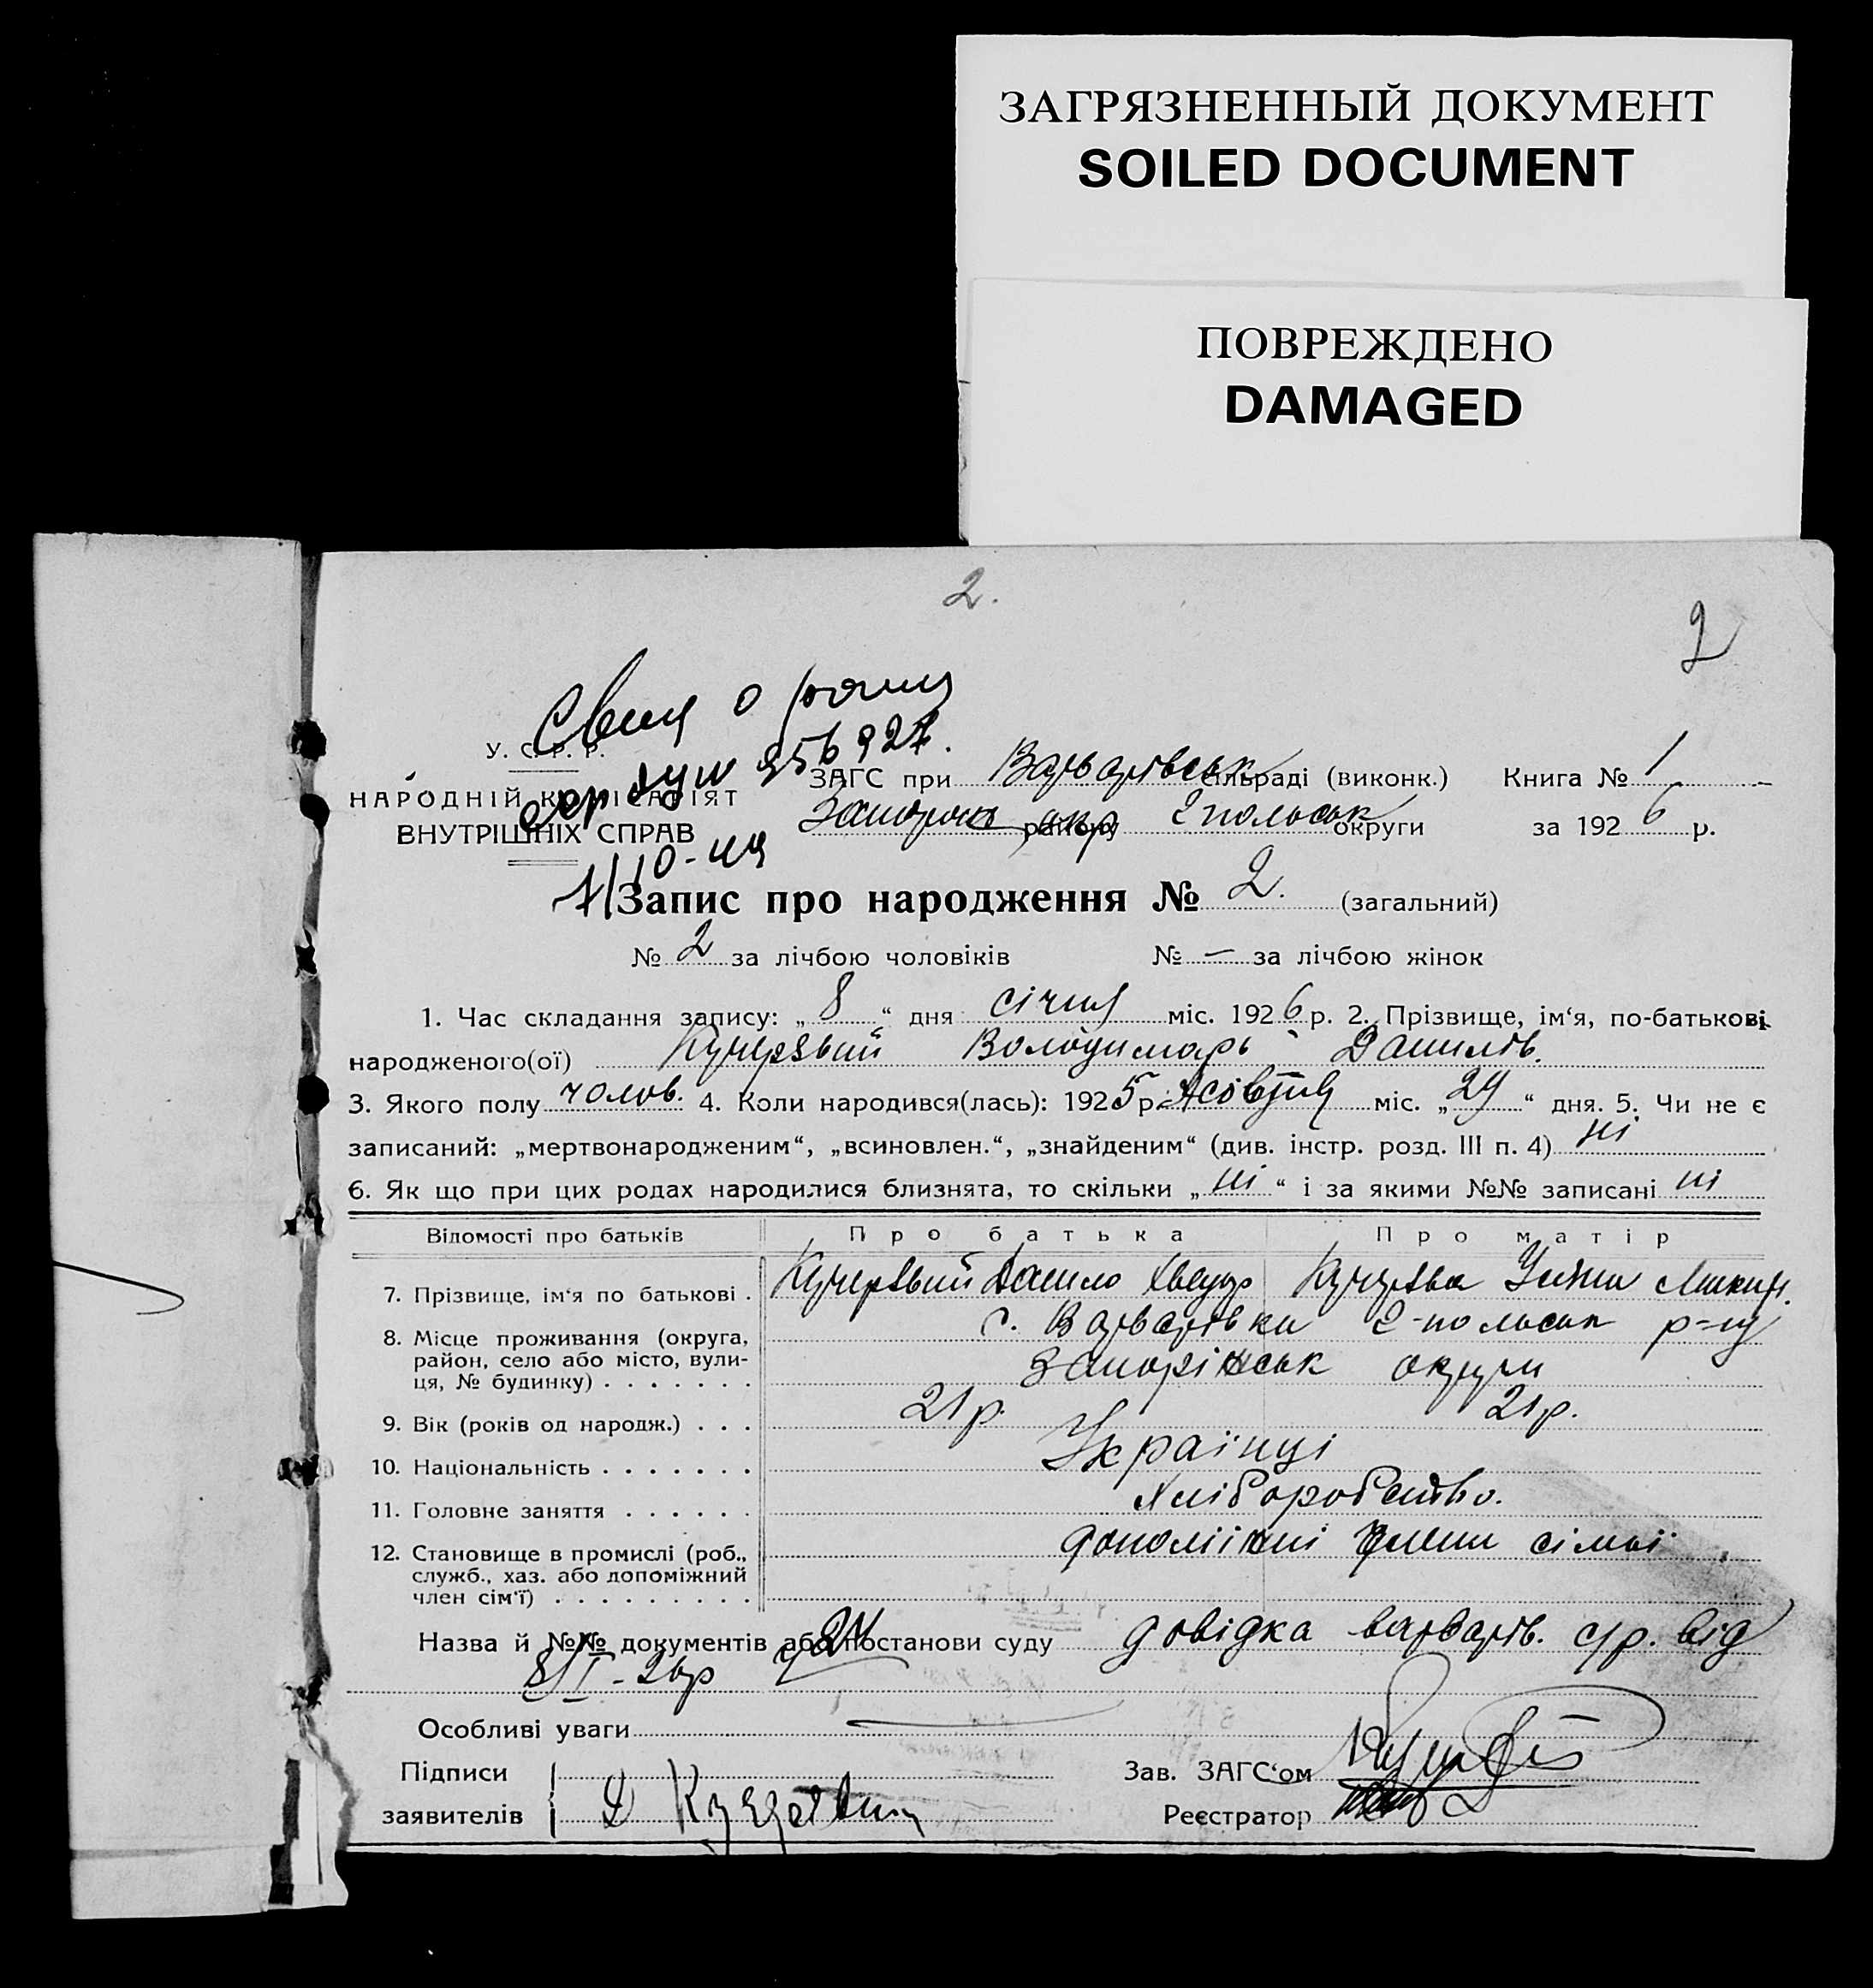 ЗАГРЯЗНЕННЫЙ ДОКУМЕНТ
SOILED DOCUMENT
ПОВРЕЖДЕНО
DAMAGED
2.
2
У. С. Р. Р.
НАРОДНІЙ КОМІСАРІЯТ
ВНУТРІШНІХ СПРАВ
ЗАГС при Варварівськ сільраді (виконк.) Книга № 1
району округи за 1926 р.
Запис про народження № 2. (загальний)
№ 2 за лічбою чоловіків № — за лічбою жінок
1. Час складання запису: „8“ дня січня міс. 1926 р. 2. Прізвище, ім‘я, по-батькові
народженого(ої) Кучерявий Володимарь Данилів.
3. Якого полу чолов. 4. Коли народився(лась): 1925 р. жовтня міс. „29“ дня. 5. Чи не є
записаний: „мертвонародженим“, „всиновлен.“, „знайденим“ (див. інстр. розд. III п. 4) ні
6. Як що при цих родах народилися близнята, то скільки „ні“ і за якими №№ записані ні
Відомості про батьків Про батька Про матір
7. Прізвище, ім‘я по батькові . Кучерявий Данило Кучерява
8. Місце проживання (округа, с. Варварівка
район, село або місто, вули- Запоріжськ округи
ця, № будинку) . . . . . . .
9. Вік (років од народж.) . . . 21 р. 21 р.
10. Національність . . . . . . . Українці
11. Головне заняття . . . . . . Хліборобство.
12. Становище в промислі (роб., члени сімьї
служб., хаз. або допоміжний
член сім‘ї) . . . . . . . . .
Назва й №№ документів або постанови суду довідка варварів. с/р. від
8/I-26р
Особливі уваги
Підписи
заявителів Д Кучерявий
Зав. ЗАГС‘ом
Реєстратор